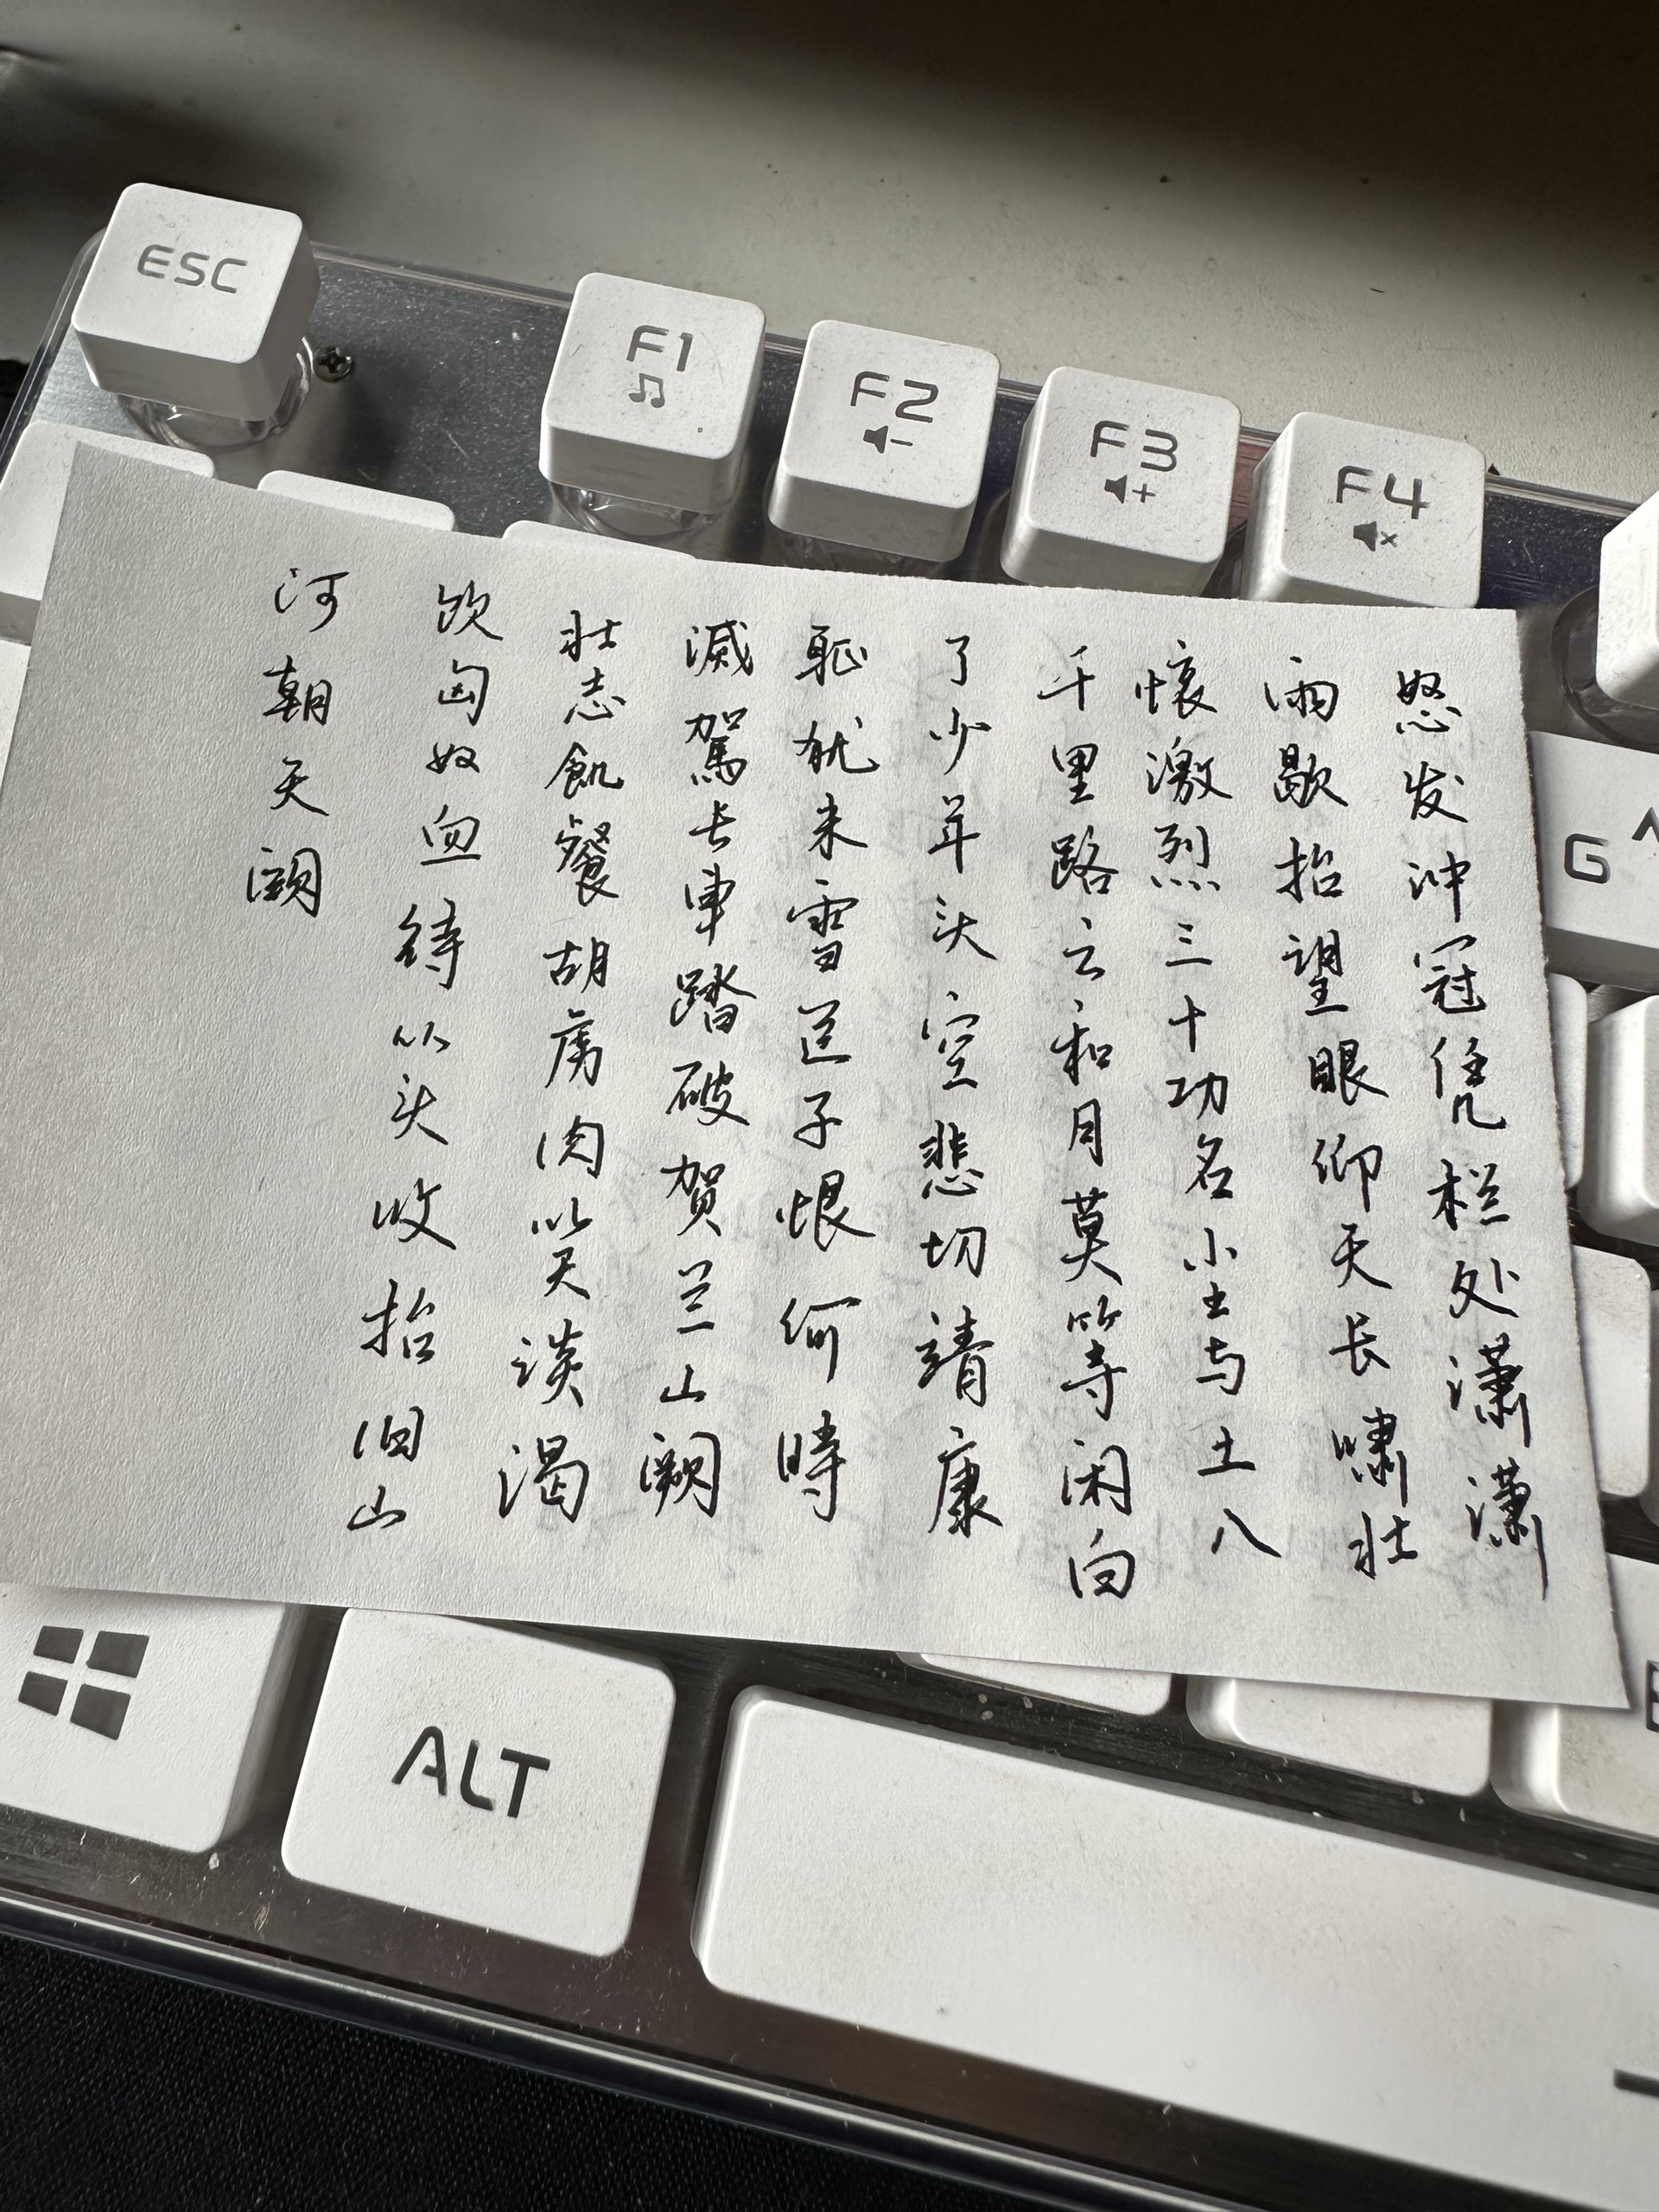 ESC
F1
F2
F3
F4
G
怒发冲冠凭栏处潇潇
雨歇抬望眼仰天长啸壮
懷激烈三十功名尘与土八
千里路云和月莫等闲白
了少年头空悲切靖康
耻犹未雪臣子恨何時
滅駕长車踏破贺兰山阙
壮志飢餐胡虏肉笑谈渴
饮匈奴血待从头收拾旧山
河朝天阙
ALT